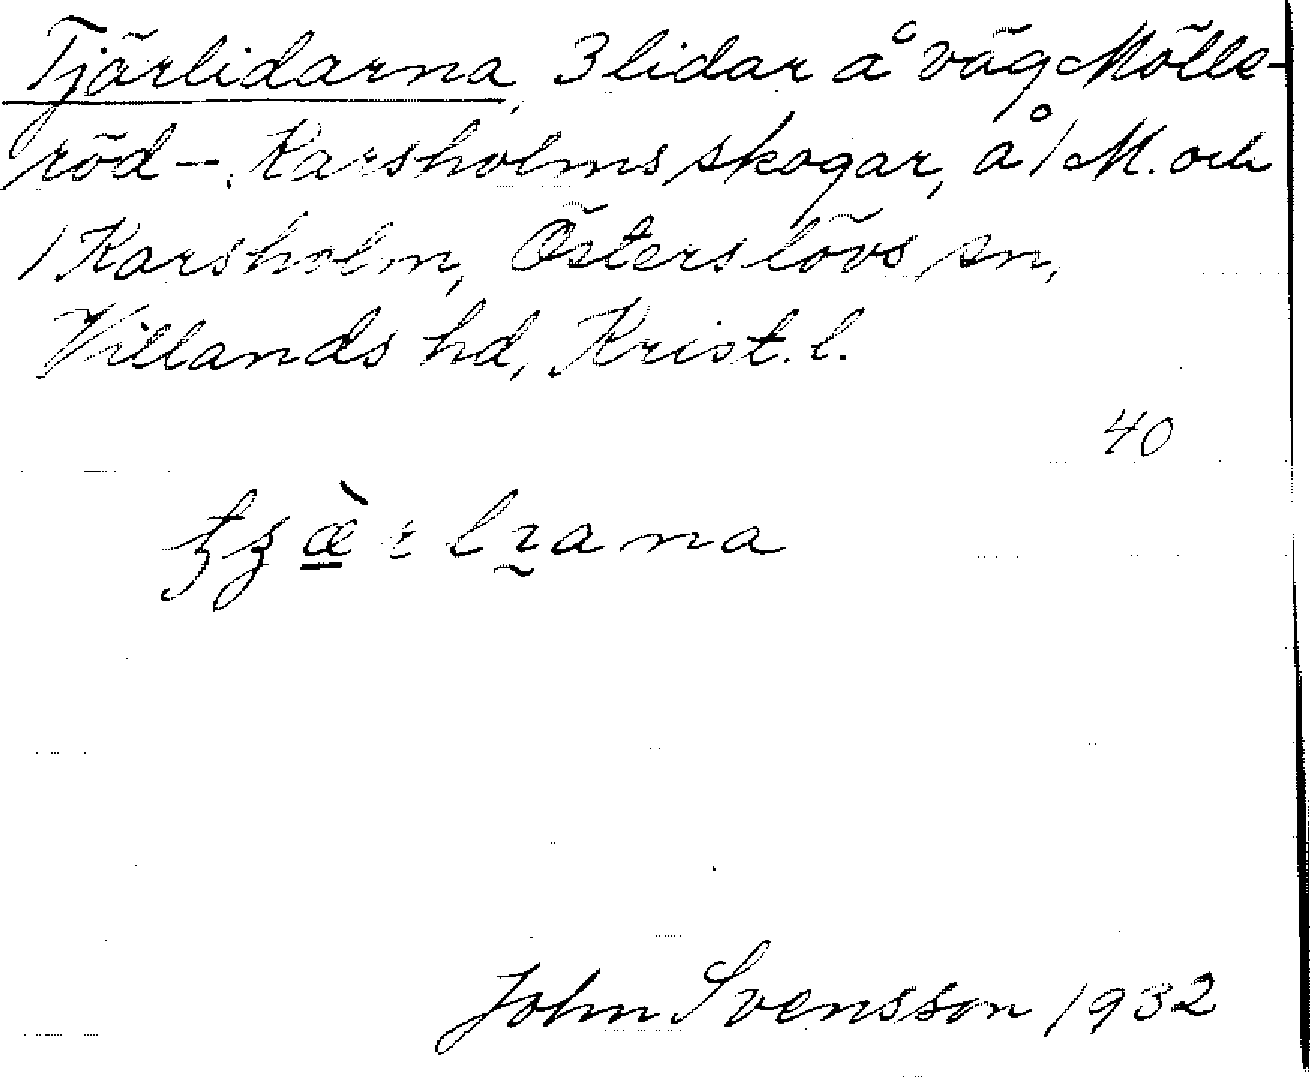 Tjärlidarna, 3 lidar å väg Mölle-
röd - Karsholms skogar, å 1 M. och
1 Karsholm, Österslövs sn,
Villands hd, Krist. l.
40
John Svensson 1932